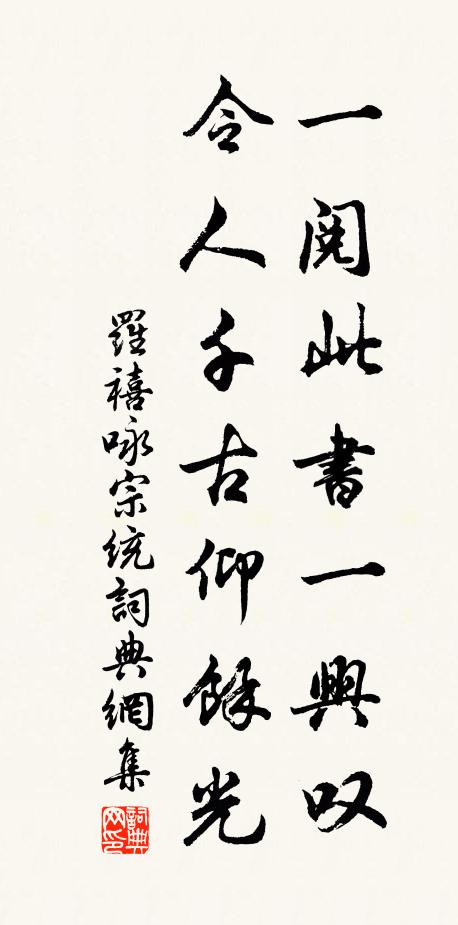 一閱此書一興叹
令人千古仰餘光
羅禧咏宗统詞典網集
詞典网印